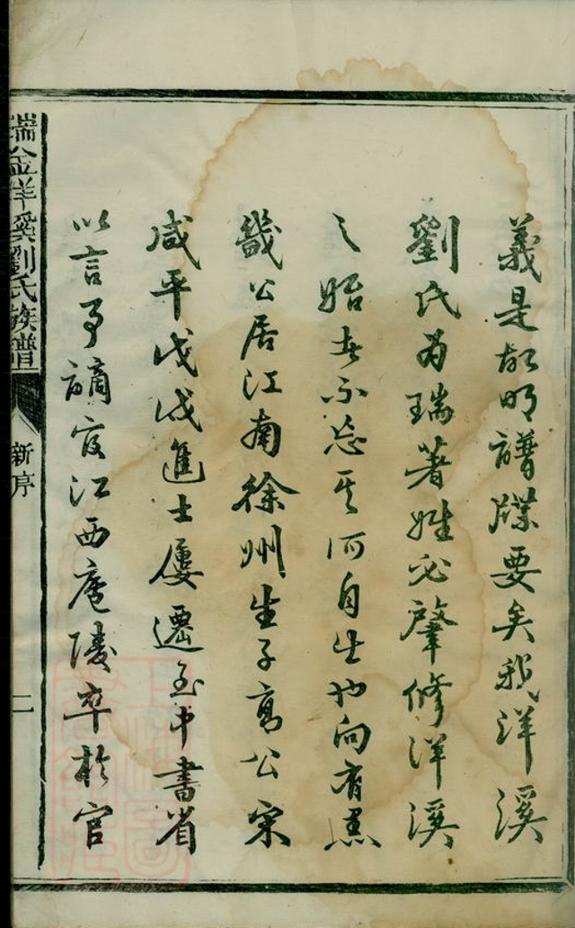 義是故明譜牒要矣我洋溪
劉氏為瑞著姓必肇修洋溪
之始者不忘其所自生也向有
畿公居江南徐州生子寫公宋
咸平戊戌進士屢遷至中書省
以言事謫官江西廬陵卒於官
瑞金洋溪劉氏族譜
新序
二